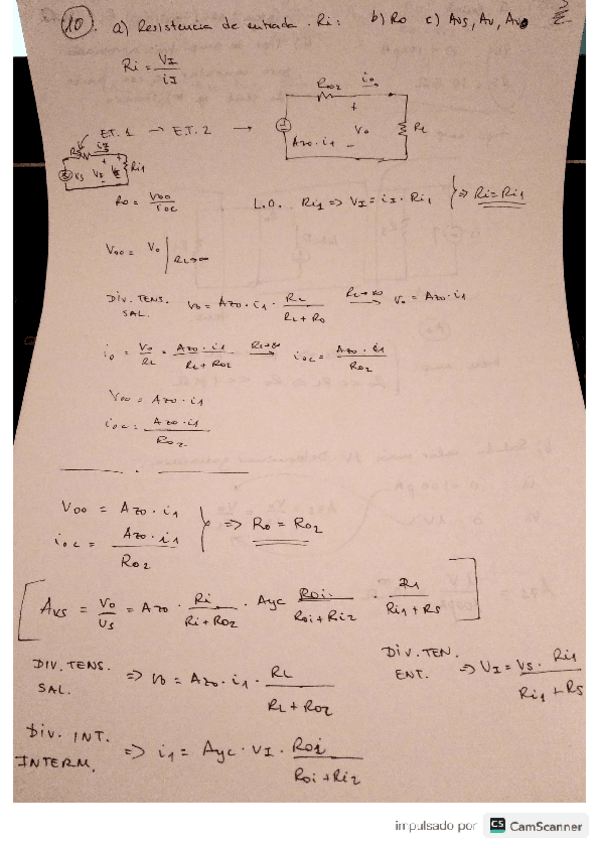 10. a) Resistencia de entrada. Ri: b) Ro c) Avs, Av, Avo
Ri = VI / iI
Ro2 io
+
Azo·i1 Vo RL
-
ET.1 → ET.2 →
Rs iI
+
Vs VI Ri1
-
Ro = Voo / ioc L.O. Ri1 ⇒ VI = iI · Ri1 } ⇒ Ri = Ri1
Voo = Vo | RL→∞
DIV. TENS. SAL. Vo = Azo · i1 · RL / RL + Ro RL→∞ → Vo = Azo·i1
io = Vo / RL = Azo·i1 / RL + Ro2 → ioc = Azo · i1 / Ro2
Voo = Azo·i1
ioc = Azo·i1 / Ro2
Voo = Azo·i1
ioc = Azo·i1 / Ro2 } ⇒ Ro = Ro2
[ Avs = Vo / Vs = Azo · Ri / Ri + Ro2 · Ayc Roi / Roi + Ri2 · Ri1 + Rs ]
DIV. TENS. SAL. ⇒ Vo = Azo · i1 · RL / RL + Ro2
DIV. TEN. ENT. ⇒ VI = Vs · Ri1 / Ri1 + Rs
DIV. INT. INTERM. ⇒ i1 = Ayc · VI · Roi / Roi + Ri2
impulsado por CS CamScanner